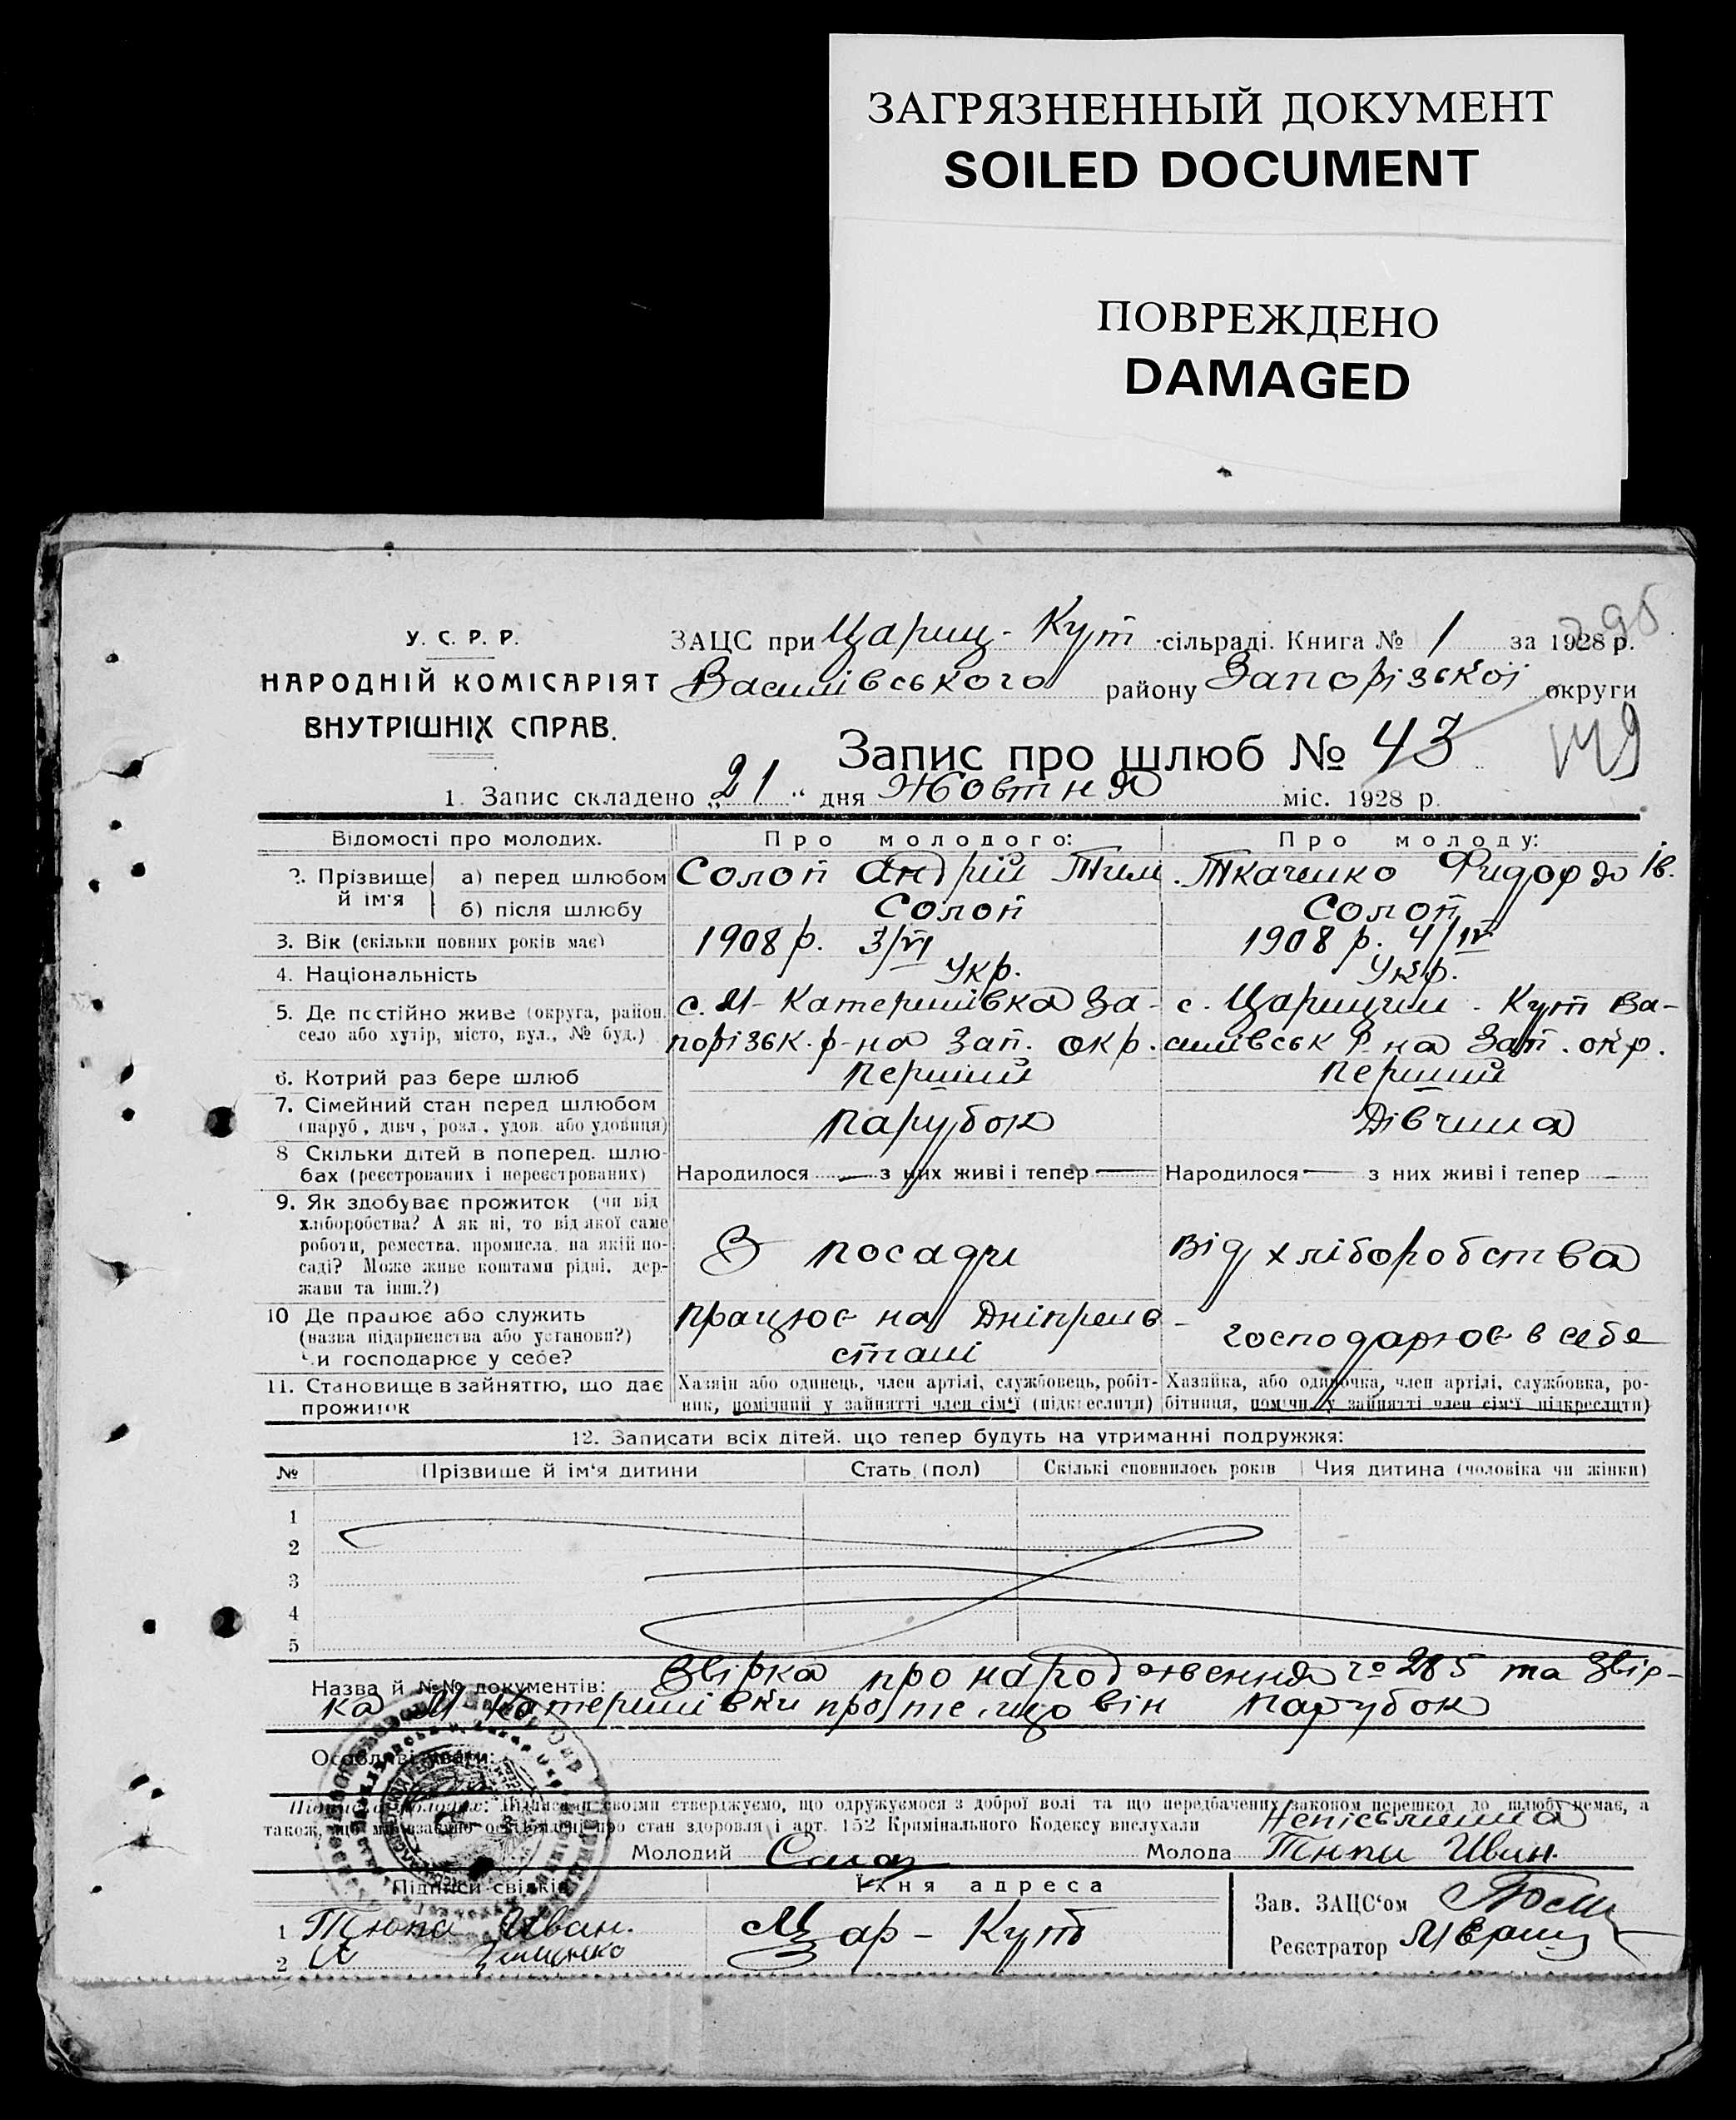 ЗАГРЯЗНЕННЫЙ ДОКУМЕНТ
SOILED DOCUMENT
ПОВРЕЖДЕНО
DAMAGED
У. С. Р. Р.
НАРОДНІЙ КОМІСАРІЯТ
ВНУТРІШНІХ СПРАВ.
ЗАЦС при Цариц-Кут сільраді. Книга № 1 за 1928 р.
Василівського району Запорізької округи
Запис про шлюб № 43
149
1. Запис складено „21“ дня Жовтня міс. 1928 р.
Відомості про молодих. Про молодого: Про молоду:
2. Прізвище й ім'я а) перед шлюбом Солоп Андрій Тим. Ткаченко Фидора Ів.
б) після шлюбу Солоп Солоп
3. Вік (скільки повних років має) 1908 р. 3/VI 1908 р. 4/IV
4. Національність Укр. Укр.
5. Де постійно живе (округа, район, с. М-Катеринівка За- с. Царицин-Кут Ва-
село або хутір, місто, вул., № буд.) порізьк. р-на Зап. окр. силівськ р-на Зап. окр.
6. Котрий раз бере шлюб перший перший
7. Сімейний стан перед шлюбом парубок дівчина
(паруб., дівч., розл., удов. або удовиця)
8 Скільки дітей в поперед. шлю-
бах (реєстрованих і нереєстрованих) Народилося — з них живі і тепер — Народилося — з них живі і тепер —
9. Як здобуває прожиток (чи від
хліборобства? А як ні, то від якої саме
роботи, ремества, промисла, на якій по- З посади Від хліборобства
саді? Може живе коштами рідні, дер-
жави та інш.?)
10 Де працює або служить працює на Дніпрельо-
(назва підприємства або установи?) стані господарює в себе
Чи господарює у себе?
11. Становище в зайняттю, що дає Хазяін або одинець, член артілі, службовець, робіт- Хазяйка, або одиночка, член артілі, службовка, ро-
прожиток ник, помічний у зайнятті член сім'ї (підкреслити) бітниця, помічн. у зайнятті член сім'ї підкреслити)
12. Записати всіх дітей, що тепер будуть на утриманні подружжя:
№ Прізвише й ім'я дитини Стать (пол) Скількі сповнилось років Чия дитина (чоловіка чи жінки)
1
2
3
4
5
Назва й №№ документів: Звірка про народження № 285 та звір-
ка М-Катеринівки про те, що він парубок
Особливі уваги:
Підписи молодих: Підписами своїми стверджуємо, що одружуємося з доброї волі та що передбачених законом перешкод до шлюбу немає, а
також, що ми взаємно освідомлені про стан здоровля і арт. 152 Кримінального Кодексу вислухали Неписьменна
Молодий Солоп Молода Тюпи Иван.
Підписи свідків Їхня адреса
1 Тюпа Иван. Цар-Кут
2
Зав. ЗАЦС'ом
Реєстратор